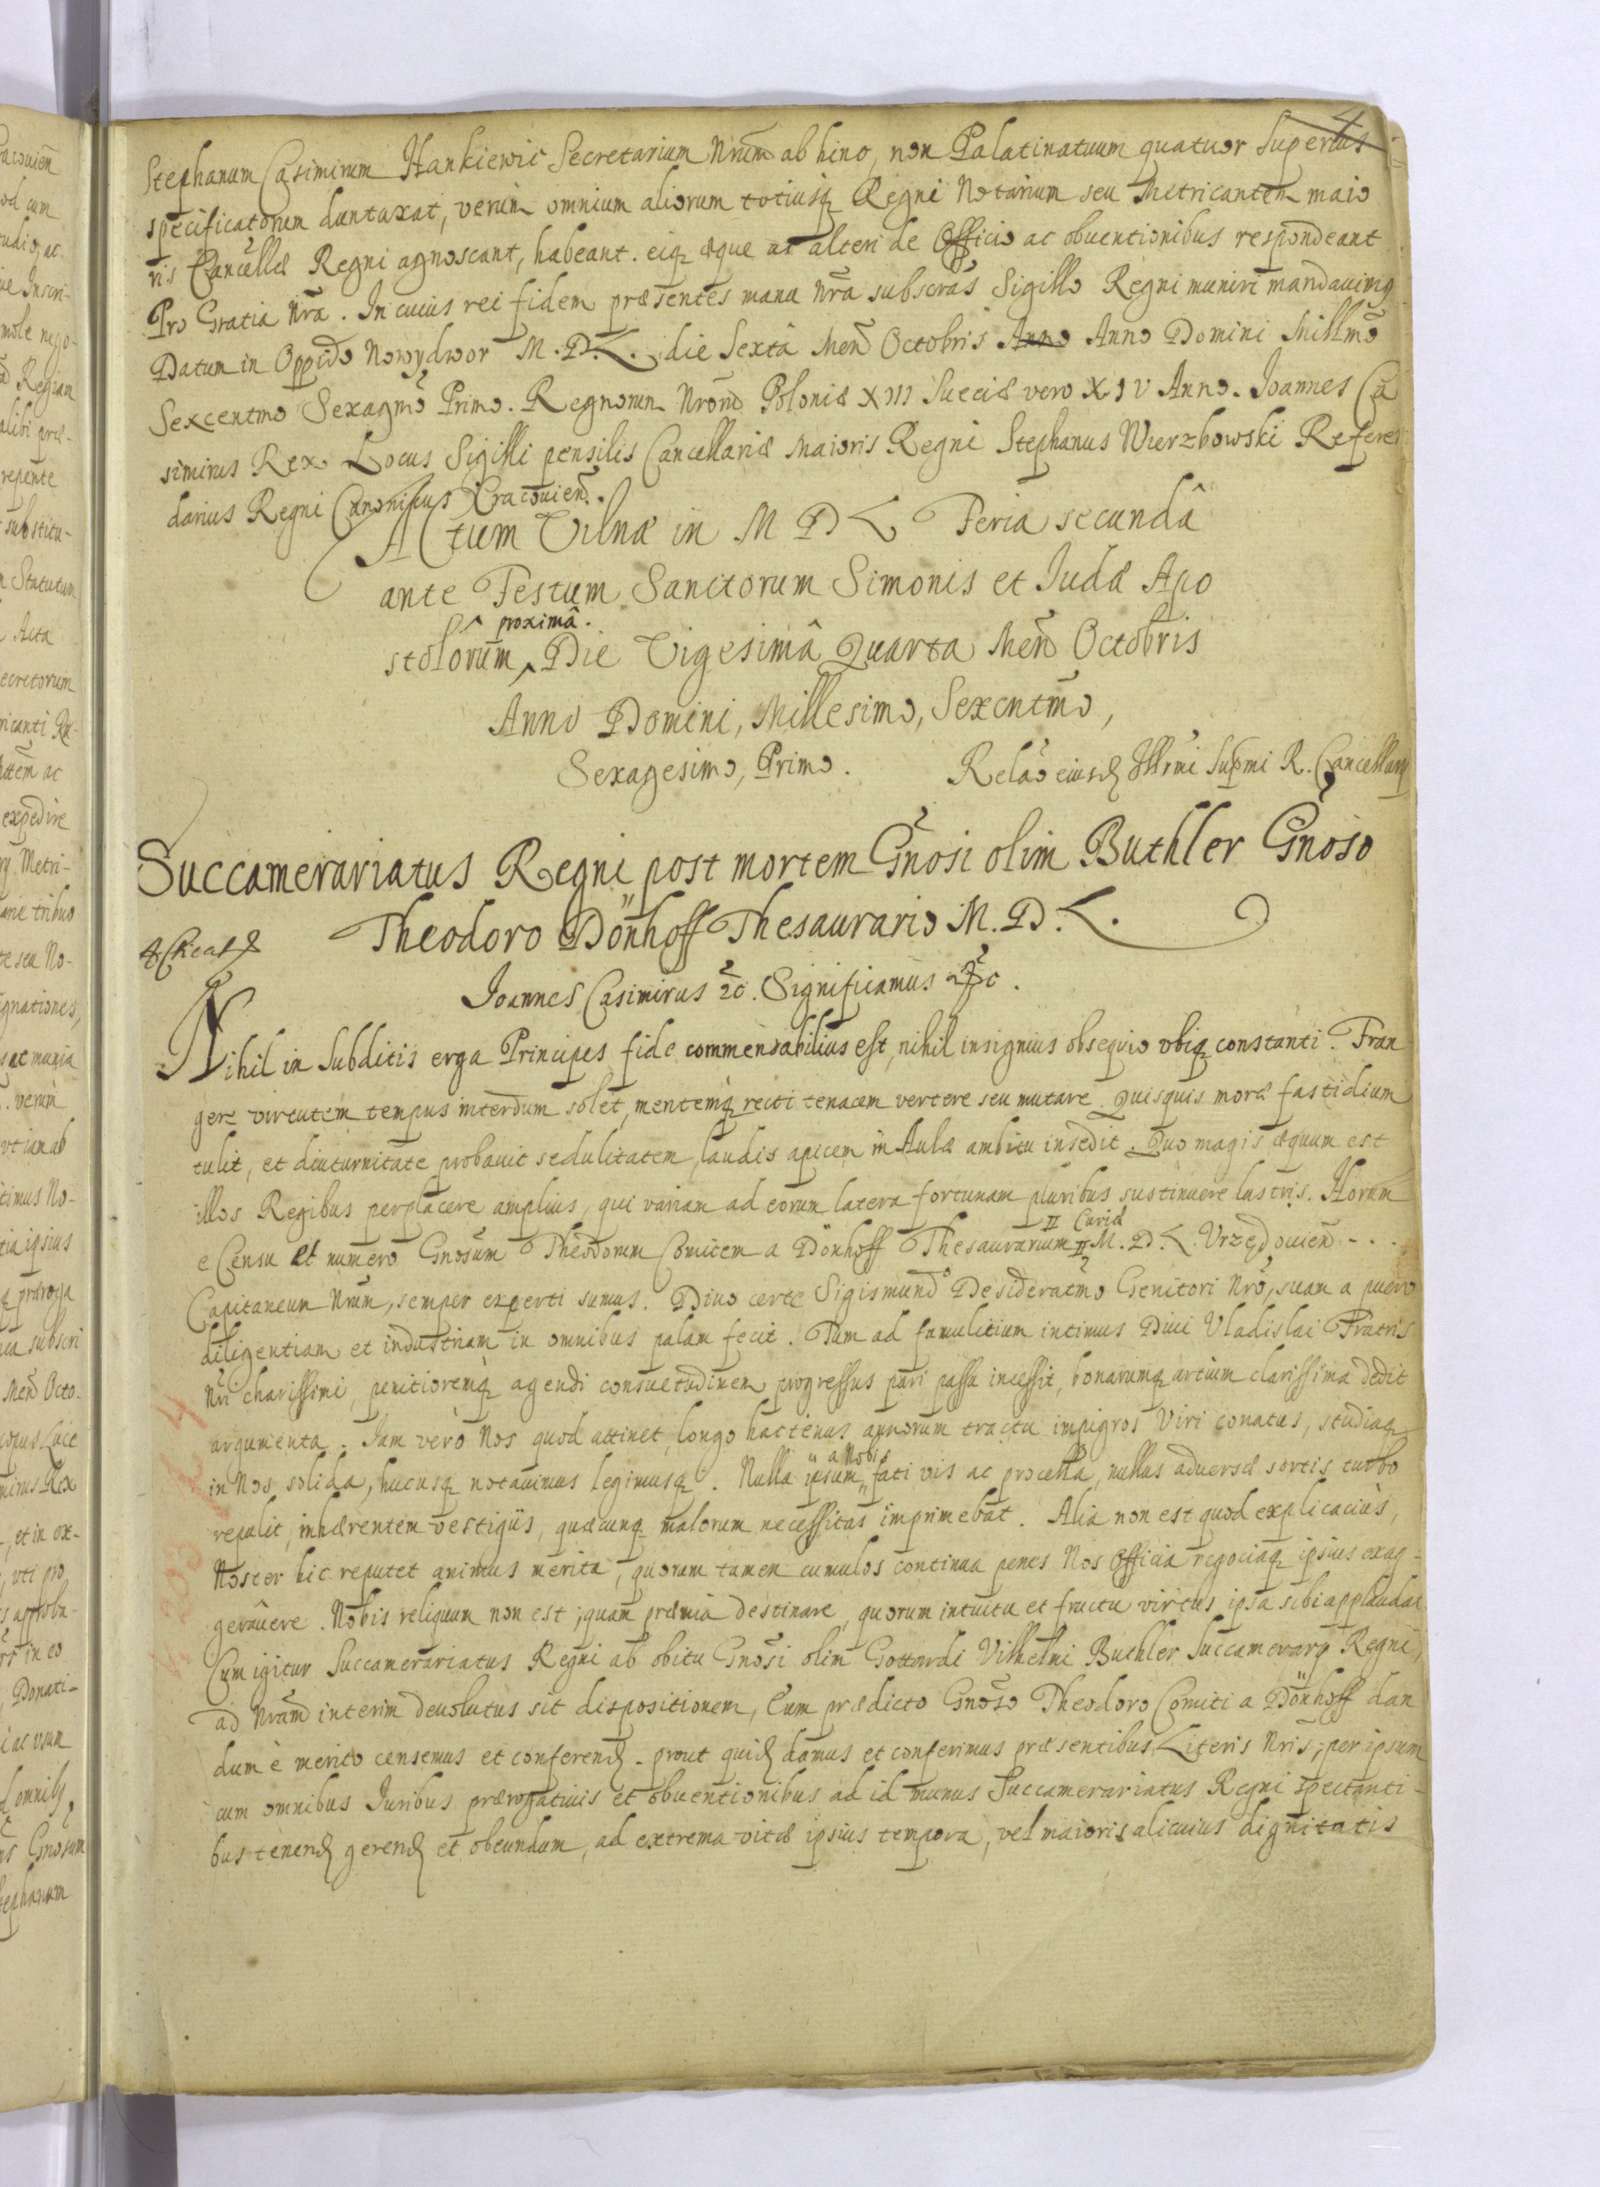 4
Stephanum Casimirum Hankiewic Secretarium Nrum̃ ab hinc, non Palatinatuum quatuor superius
specificatorum duntaxat, verùm omnium aliorum totiusq̨ Regni Notarium seu Metricantem maio
ris Cancellæ Regni agnoscant, habeant. eiq̨ æque ac alteri de Officio ac obuentionibus respondeant
Pro Gratia Nr̃a. In cuius rei fidem præsentes manu Nr̃a subscr̃as Sigillo Regni muniri mandauimq
Datum in Oppido Nowydwor M. D. L. die Sexta Men̄ Octobris Anno Anno Domini Millmõ
Sexcentmo Sexagmõ Primo. Regnorum Nrõrū Poloniæ XIII Sueciæ vero XIV Anno. Joannes Ca
simirus Rex. Locus Sigilli pensilis Cancellariæ Maioris Regni Stephanus Wierzbowski Referen
darius Regni Canonicus Cracouien̄.
Actum Vilnæ in M D L Feria secundâ
ante Festum Sanctorum Simonis et Judæ Apo
proximâ.
stolorum, Die Vigesimâ Quarta Men̄ Octobris
Anno Domini, Millesimo, Sexcntmõ,
Sexagesimo, Primo.
Relaõ eiusd̨ Illrmi Supmi R. Cancellarij
Succamerariatus Regni post mortem Gñosi olim Buthler Gñoso
Theodoro Dönhoff Thesaurario M. D. L.
Joannes Casimirus 2c. Significamus 2c.
Nihil in Subditis erga Principes fide commendabilius est, nihil insignius obsequio vbiq̨ constanti. Fran
gere virtutem tempus interdum solet, mentemq̨ recti tenacem vertere seu mutare. Quisquis moræ fastidium
tulit, et diuturnitate probauit sedulitatem, laudis apicem in Aulæ ambitu insedit. Quo magis æquum est
illos Regibus perplacere amplius, qui variam ad eorum latera fortunam pluribus sustinuere lustris. Horum
II Curiæ
e Censu et numero Gnosum Theodorum Comitem a Dönhoff Thesaurarium II M. D. L. Vrzędouien̄ - . .
Capitaneum Nrũm, semper experti sumus. Diuo certe Sigismundo Desideratmo Genitori Nrõ, suam a puero
diligentiam et industriam in omnibus palam fecit. Tum ad famulitium intimus Diui Vladislai Fratris
Nri charissimi, penitioremq̨ agendi consuetudinem progressus pari passu incessit, bonarumq̨ artium clarissima dedit
argumenta. Jam verò Nos quod attinet, longo hactenus annorum tractu impigros Viri conatus, studiaq̨
a Nobis
in Nos solida, hucusq̨ notauimus legimusq̨. Nulla ipsum fati vis ac procella, nullus aduersæ sortis turbo
repulit, inhærentem vestigiis, quæcunq̨ malorum necessitas imprimebat. Alia non est quod explicaciùs,
Noster hic reputet animus merita, quorum tamen cumulos continua penes Nos Officia negociaq̨ ipsius exag-
gerâuere. Nobis reliquum non est, quam præmia destinare, quorum intuitu et fructu virtus ipsa sibi applaudat
Cum igitur Succamerariatus Regni ab obitu Gnõsi olim Gottardi Vilhelmi Buthler Succamerarij Regni,
ad Nram̃ interim deuolutus sit dispositionem, Eum prædicto Gnõso Theodoro Comiti a Dönhoff dan
dum è merito censemus et conferend̨. prout quid̨ damus et conferimus præsentibus Literis Nris̃, per ipsum
cum omnibus Juribus prærogatiuis et obuentionibus ad id munus Succamerariatus Regni spectanti-
bus tenend̨ gerend̨ et obeundum, ad extrema vitæ ipsius tempora, vel maioris alicuius dignitatis